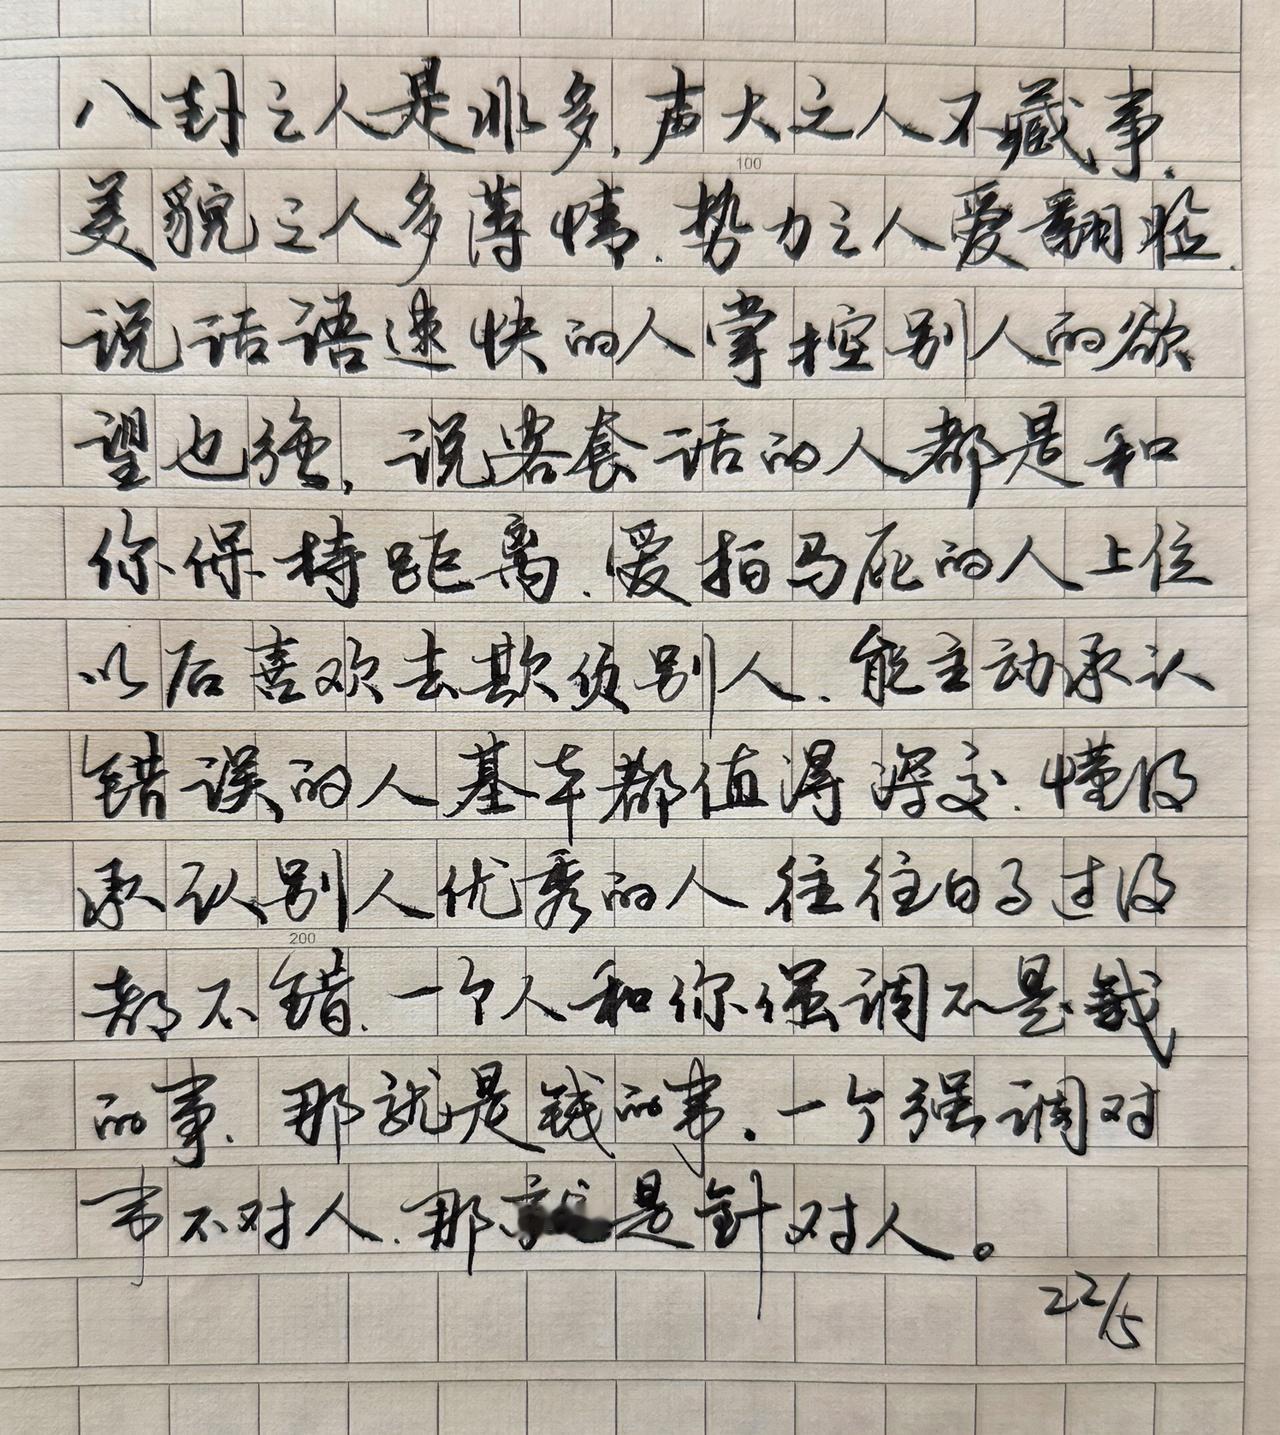 八封之人是非多,声大之人不藏事.
100
美貌之人多薄情.势力之人爱翻脸.
说话语速快的人掌控别人的欲
望也强,说客套话的人都是和
你保持距离.爱拍马屁的人上位
以后喜欢去欺负别人.能主动承认
错误的人基本都值得深交.懂得
承认别人优秀的人往往日子过得
200
都不错.一个人和你强调不是钱
的事.那就是钱的事.一个强调对
事不对人.那就是针对人。
22/5